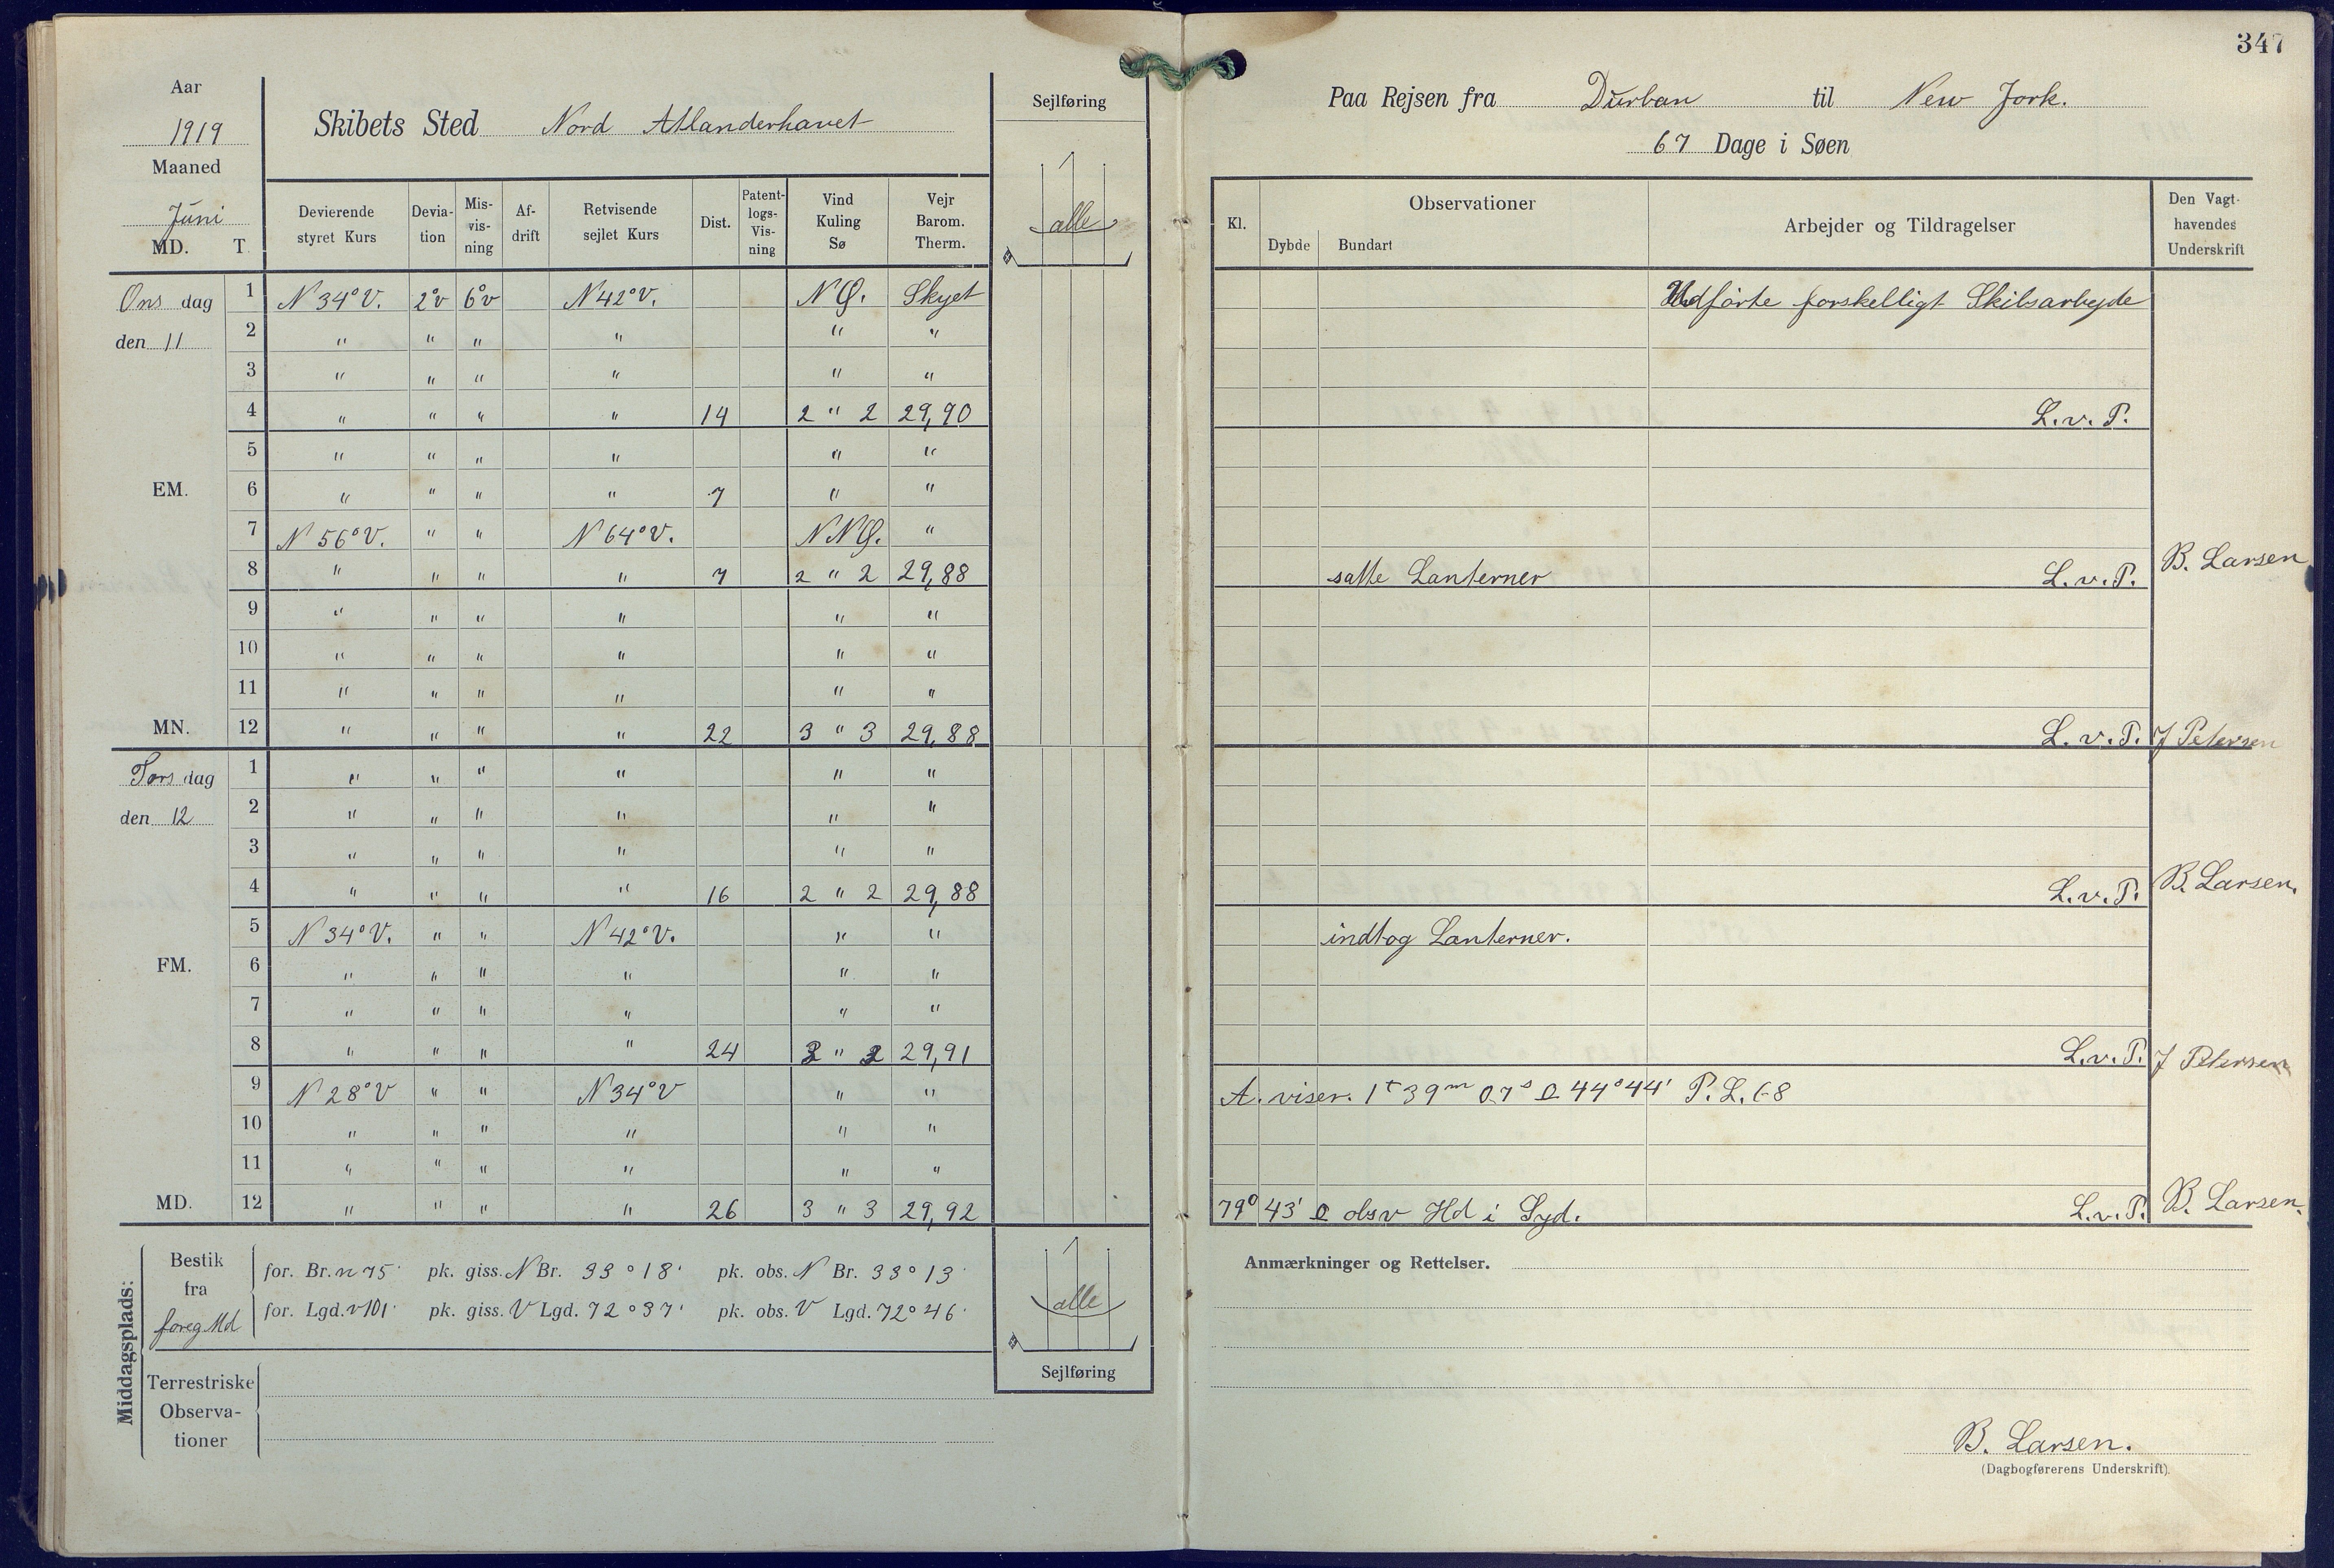 Aar
1919
Maaned
Juni
MD. T.
Skibets Sted Nord Atlanderhavet
Sejlføring
alle
Devierende styret Kurs | Deviation | Misvisning | Afdrift | Retvisende sejlet Kurs | Dist. | Patentlogs-Visning | Vind Kuling Sø | Vejr Barom. Therm.
Ons dag 1 N 34° V. 2°v 6°v N 42° V. N Ø. Skyet
den 11 2 " " " " " "
3 " " " " " "
4 " " " " 14 2 " 2 29,90
5 " " " " " "
EM. 6 " " " " 7 " "
7 N 56° V. " " N 64° V. N N Ø. "
8 " " " " 7 2 " 2 29,88
9 " " " " " "
10 " " " " " "
11 " " " " " "
MN. 12 " " " " 22 3 " 3 29,88
Tors dag 1 " " " " " "
den 12 2 " " " " " "
3 " " " " " "
4 " " " " 16 2 " 2 29,88
5 N 34° V. " " N 42° V. " "
FM. 6 " " " " " "
7 " " " " " "
8 " " " " 24 " 29,91
9 N 28° V " " N 34° V " "
10 " " " " " "
11 " " " " " "
MD. 12 " " " " 26 3 " 3 29,92
Middagsplads:
Bestik fra foreg Md
for. Br. n 75' pk. giss. N Br. 33° 18' pk. obs. N Br. 33° 13'
for. Lgd. v 101' pk. giss. V Lgd. 72° 37' pk. obs. V Lgd. 72° 46'
Terrestriske Observationer
alle
Sejlføring
347
Paa Rejsen fra Durban til New Jork.
67 Dage i Søen
Kl. | Observationer | Dybde | Bundart | Arbejder og Tildragelser | Den Vagthavendes Underskrift
Udførte forskelligt Skibsarbejde
L. v. P.
satte Lanterner L. v. P. B. Larsen
L. v. P. J Petersen
L. v. P. B. Larsen.
indtog Lanterner.
L. v. P. J Petersen
A. viser. 1t 39m 07s 44° 44' P. L. 68
79° 43' obsv Hd i Syd. L. v. P. B. Larsen.
Anmærkninger og Rettelser.
B. Larsen.
(Dagbogførerens Underskrift)